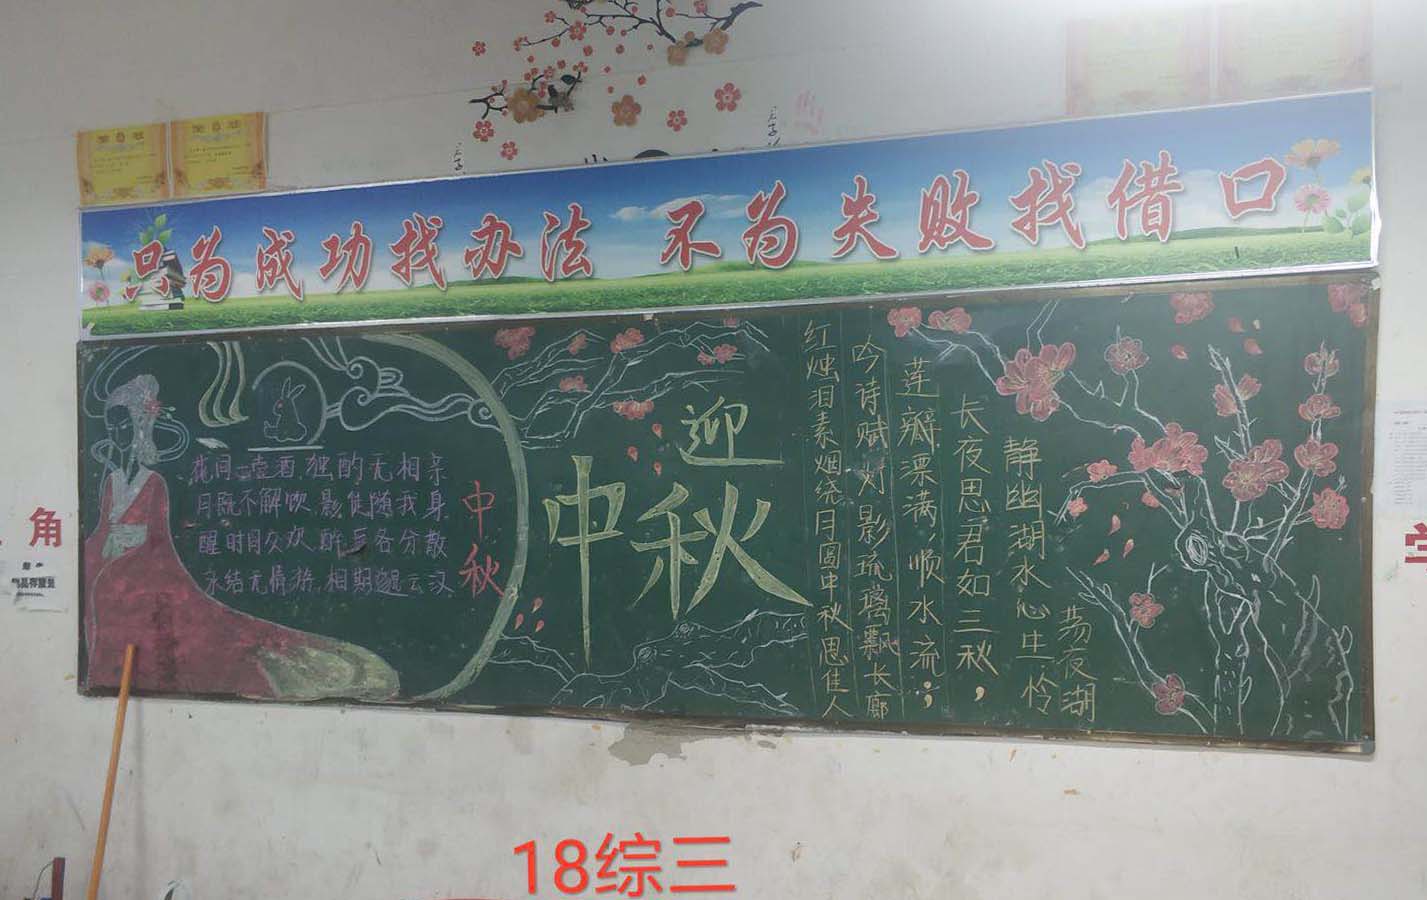 只为成功找办法 不为失败找借口
花间一壶酒,独酌无相亲
月既不解饮,影徒随我身
醒时同交欢,醉后各分散
永结无情游,相期邈云汉
中秋
迎
中秋
荡夜湖
静幽湖水心生怜
长夜思君如三秋,
莲瓣漂满,顺水流;
吟诗赋对影琉璃飘长廊
红烛泪素烟绕月圆中秋思佳人
角
18综三